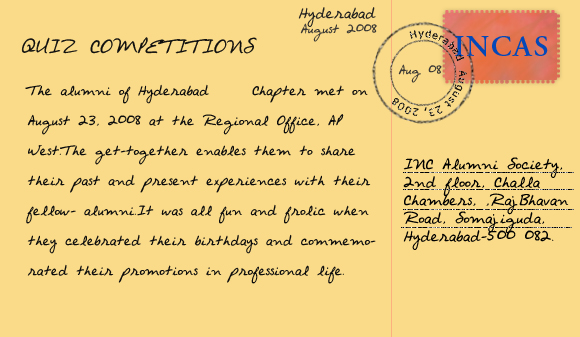 Hyderabad
August 2008
QUIZ COMPETITIONS
INCAS
Hyderabad August 23, 2008
Aug 08
The alumni of Hyderabad Chapter met on
August 23, 2008 at the Regional Office, AP
West.The get-together enables them to share
their past and present experiences with their
fellow- alumni.It was all fun and frolic when
they celebrated their birthdays and commemo-
rated their promotions in professional life.
INC Alumni Society,
2nd floor, Challa
Chambers, ,Raj Bhavan
Road, Somajiguda,
Hyderabad-500 082.